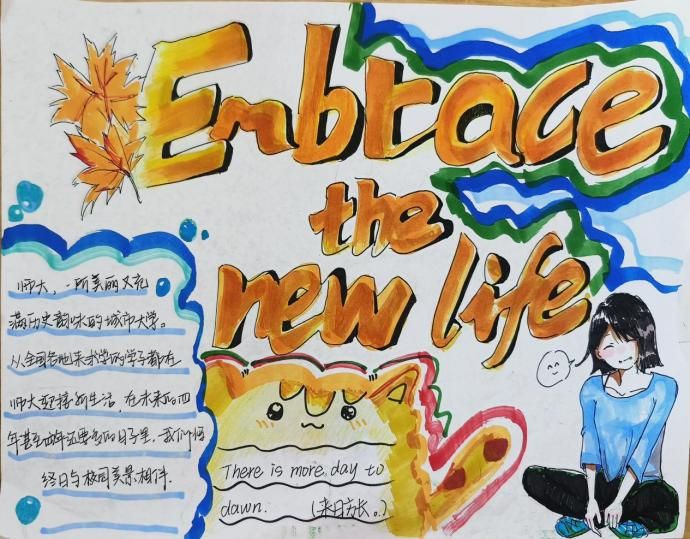 Embrace
the
new life
师大，一所美丽又充
满历史韵味的城市大学。
从全国各地来求学的学子都在
师大迎接新生活，在未来的四
年甚至更的日子里，我们将
终日与校园美景相伴.
There is more day to
dawn. (来日方长。)